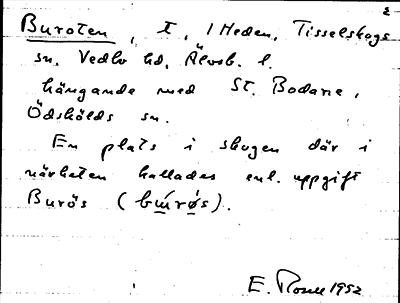 2
Buroten, t, i Heden, Tisselskogs
sn, Vedbo hd, Älvsb. l.
hängande med St. Bodane,
Ödskölds sn.
En plats i skogen där i
närheten kallades enl. uppgift
Burös (búrøs).
E. Rosell 1952